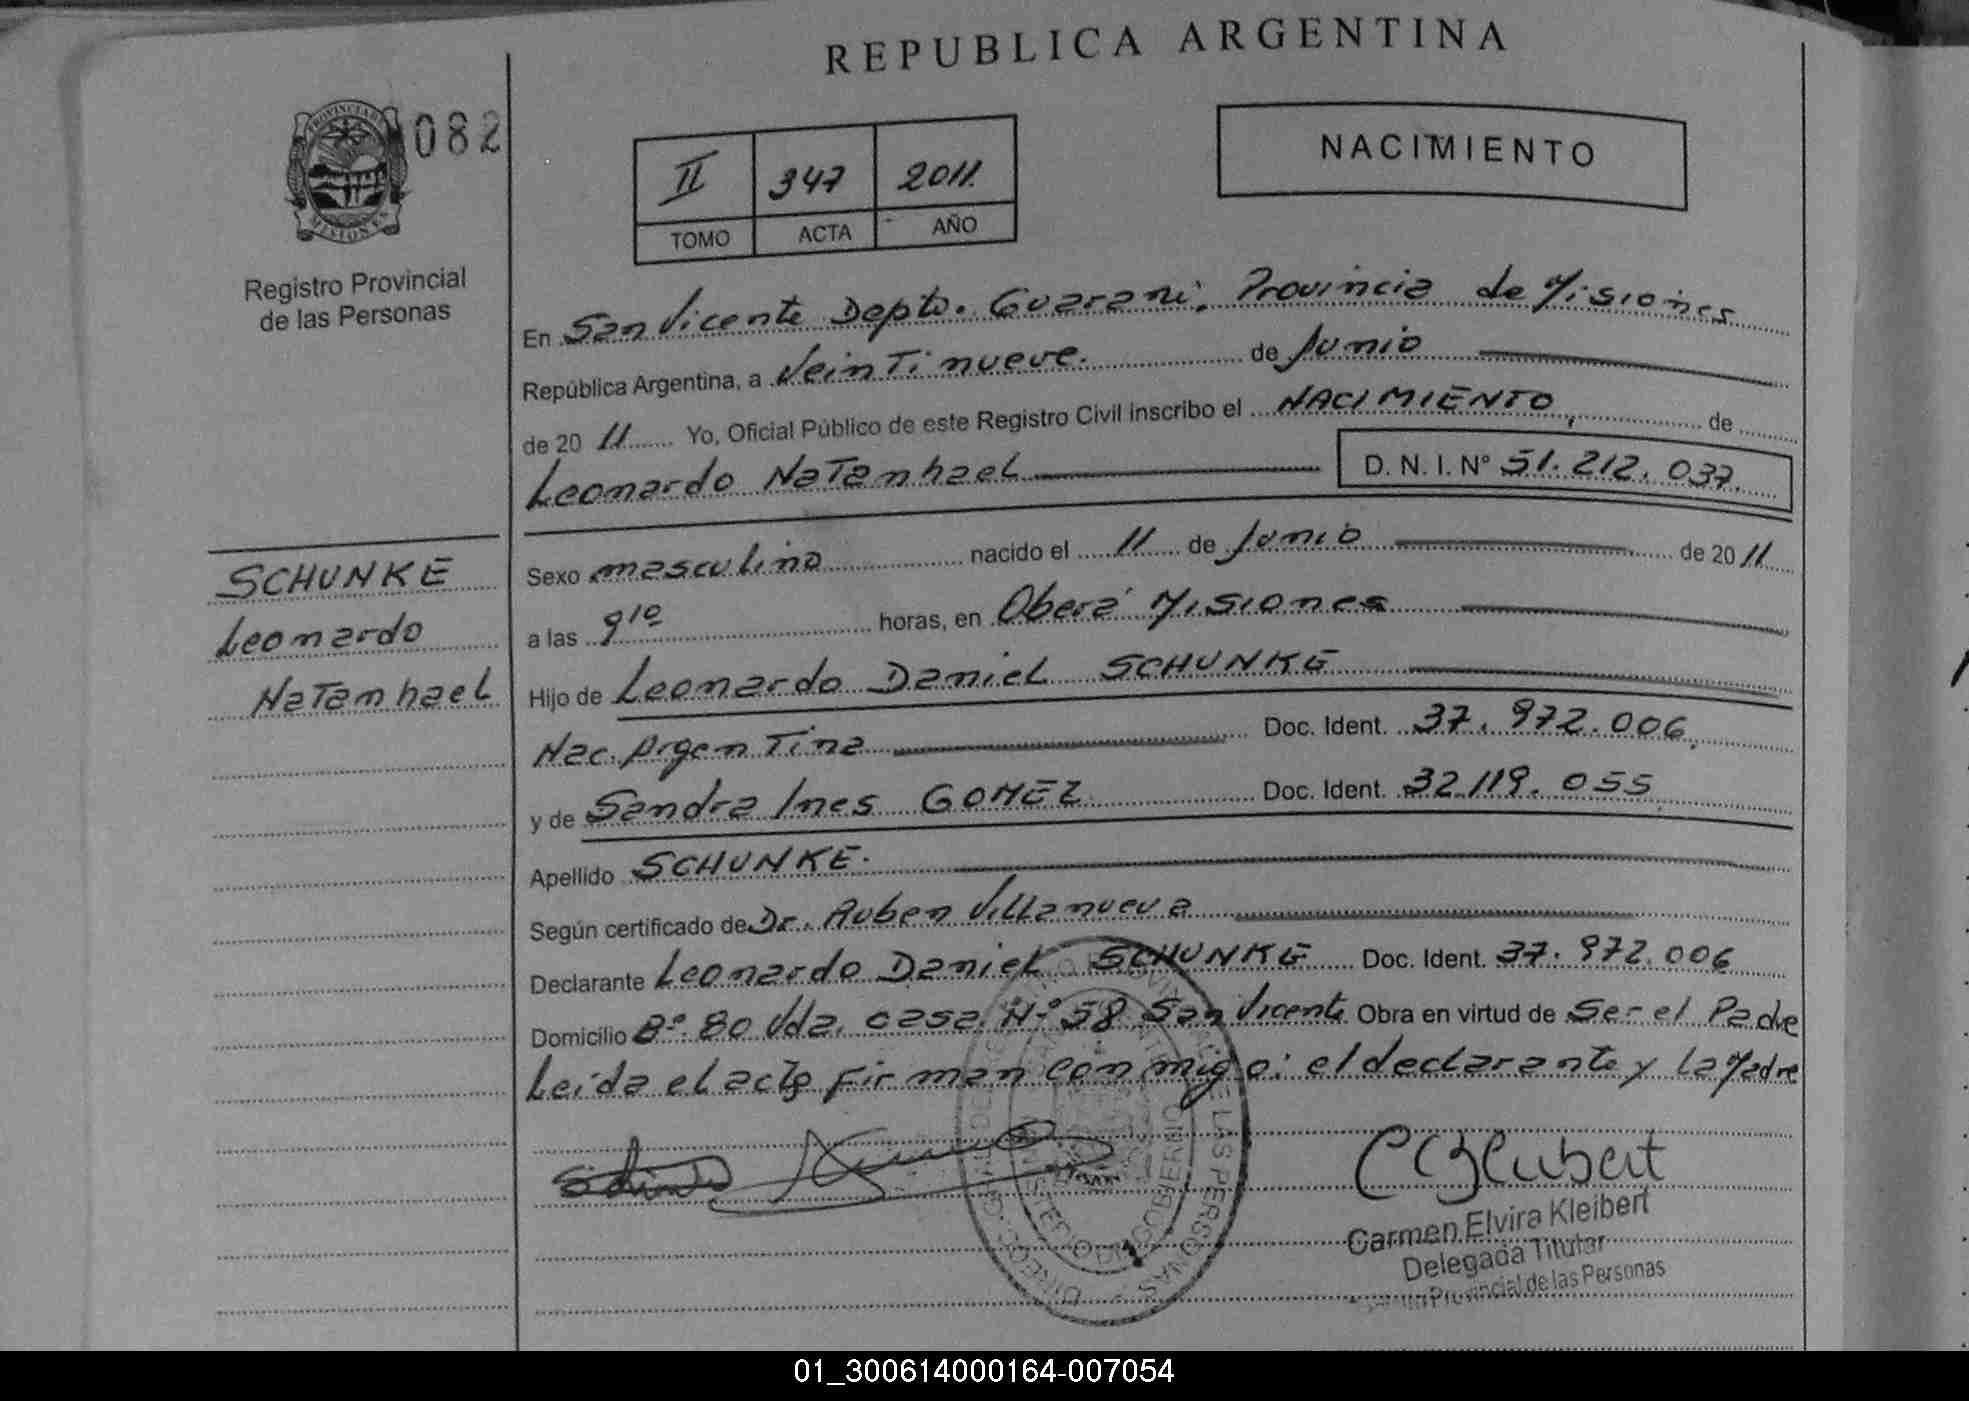 REPUBLICA ARGENTINA
PROVINCIA DE
MISIONES
082
Registro Provincial
de las Personas
II 347 2011.
TOMO ACTA AÑO
NACIMIENTO
En San Vicente Depto. Guaraní, Provincia de Misiones
República Argentina, a Veintinueve. de Junio
de 20 11 Yo, Oficial Público de este Registro Civil inscribo el NACIMIENTO, de
Leonardo Natanhael D. N. I. N° 51.212.037.
SCHUNKE
Leonardo
Natanhael
Sexo masculino nacido el 11 de Junio de 20 11
a las 9¹⁰ horas, en Oberá Misiones
Hijo de Leonardo Daniel SCHUNKE
Nac. Argentina Doc. Ident. 37.972.006,
y de Sandra Ines GOMEZ Doc. Ident. 32.119.055
Apellido SCHUNKE.
Según certificado de Dr. Ruben Villanueva
Declarante Leonardo Daniel SCHUNKE Doc. Ident. 37.972.006
Domicilio B° 80 Vda. casa N° 58 San Vicente Obra en virtud de Ser el Padre
Leída el acta firman conmigo: el declarante y la Madre
CEKleibert
Carmen Elvira Kleibert
Delegada Titular
Provincial de las Personas
01_300614000164-007054